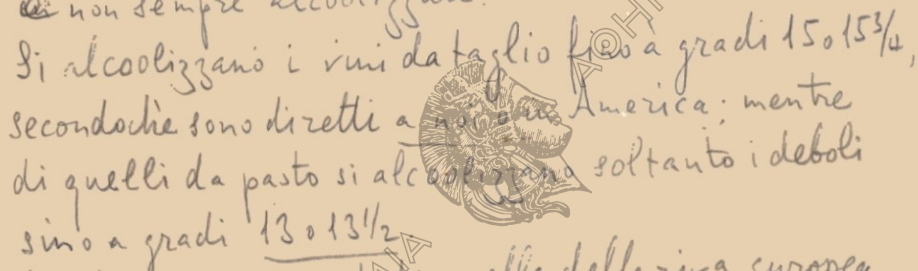 non sempre alcoolizzare.
Si alcoolizzano i vini da taglio fino a gradi 15 o 15¾,
secondochè sono diretti a noi o in America; mentre
di quelli da pasto si alcoolizzano soltanto i deboli
sino a gradi 13 o 13½.
della riva europea